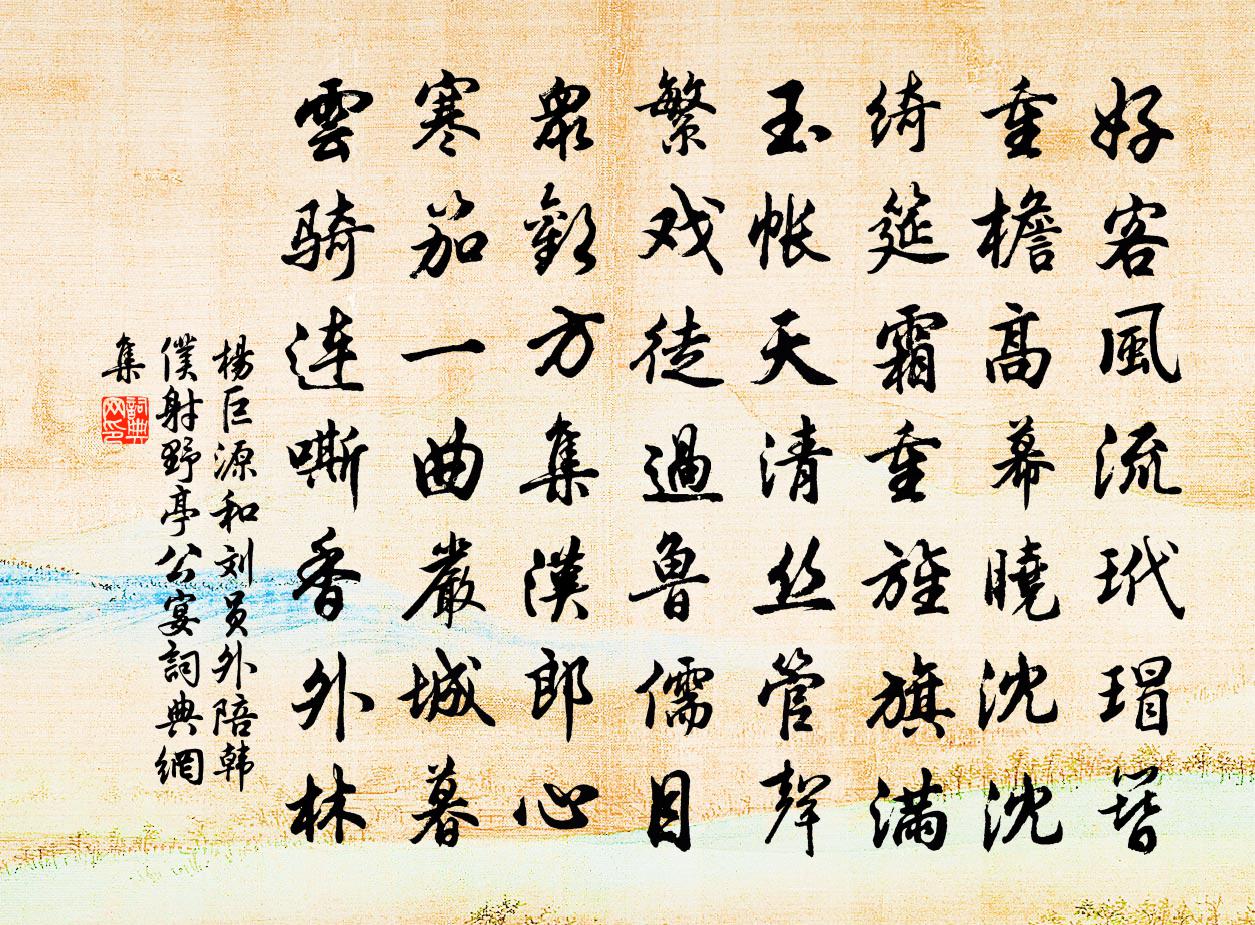 好客風流玳瑁簪
重檐高幕曉沈沈
綺筵霜重旌旗滿
玉帐天清丝管聲
繁戏徒過魯儒目
眾歡方集漢郎心
寒笳一曲嚴城暮
雲骑连嘶香外林
楊巨源和刘员外陪韩
僕射野亭公宴詞典網
集
詞典
网印